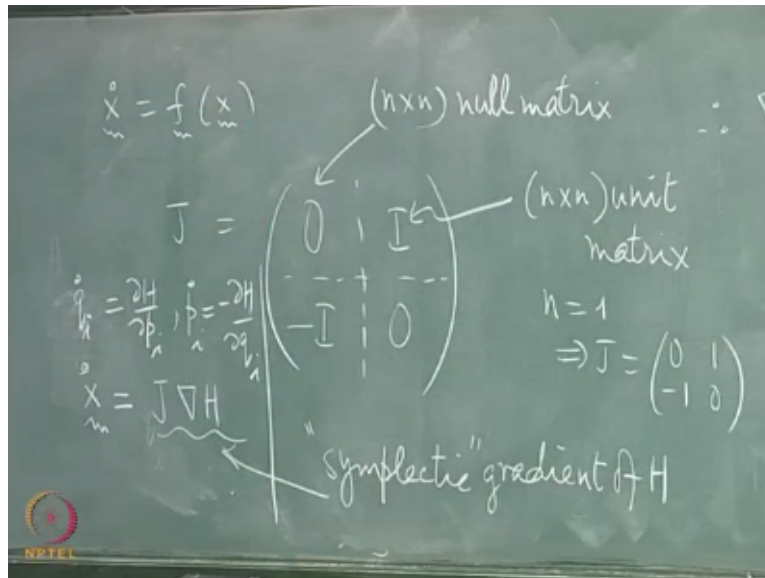 ẋ = f(x)
(n×n) null matrix
∴ ∇
J = ( 0 I
-I 0 )
(n×n) unit
matrix
q̇ᵢ = ∂H/∂pᵢ , ṗᵢ = -∂H/∂qᵢ
n = 1
⇒ J = ( 0 1
-1 0 )
ẋ = J∇H
"symplectic" gradient of H
NPTEL